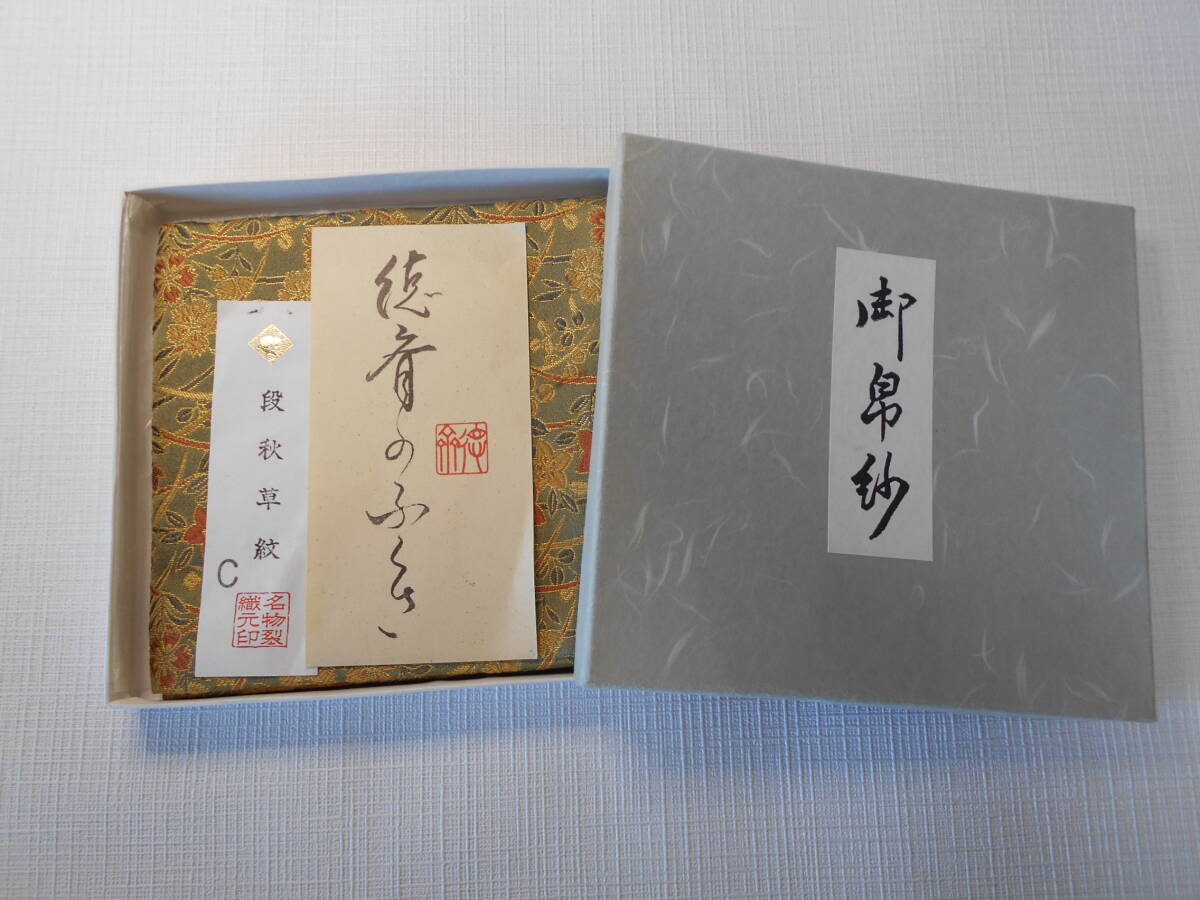 御帛紗
徳斎のふくさ
段秋草紋
C
名物裂
織元印